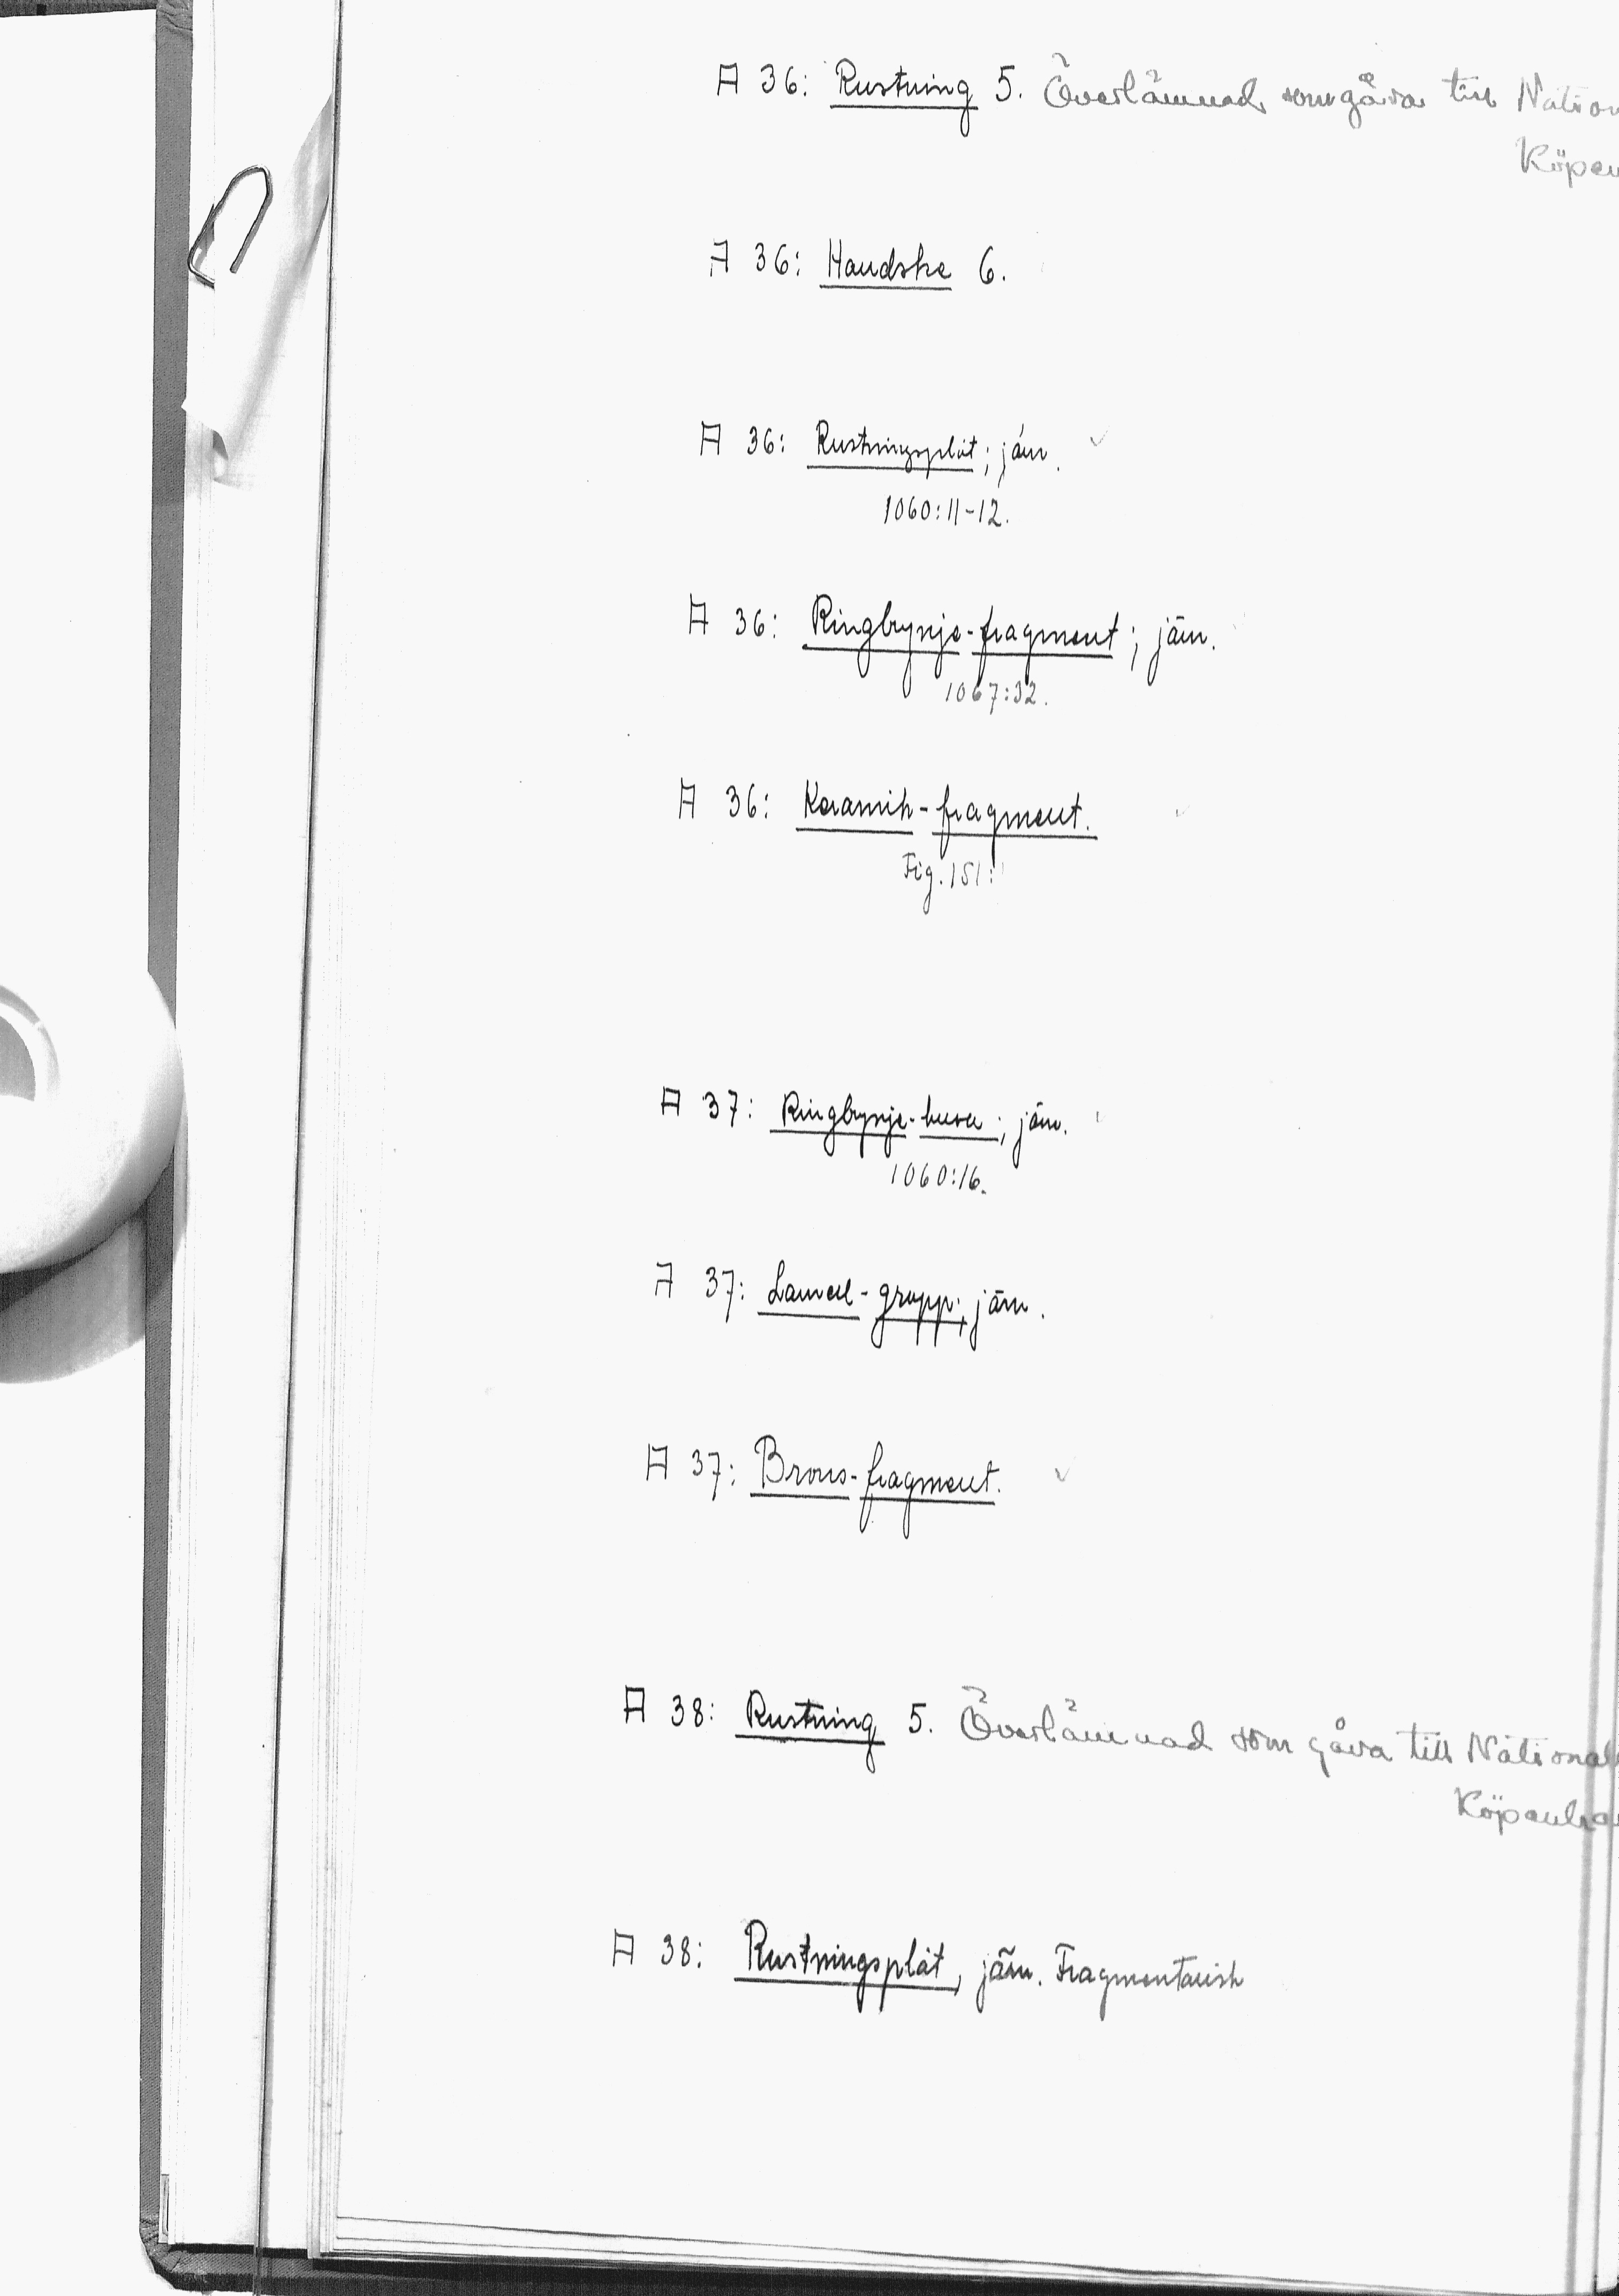 A 36: Rustning 5. Överlämnad som gåva till Nation
Köpen
A 36: Handske 6.
A 36: Rustningsplåt; järn.
1060:11-12.
A 36: Ringbrynje-fragment; järn.
1067:32.
A 36: Keramik-fragment.
Fig. 151:1
A 37: Ringbrynje-huva; järn.
1060:16.
A 37: Lamell-grupp; järn.
A 37: Brons-fragment.
A 38: Rustning 5. Överlämnad som gåva till National
Köpenha
A 38: Rustningsplåt, järn. Fragmentarisk